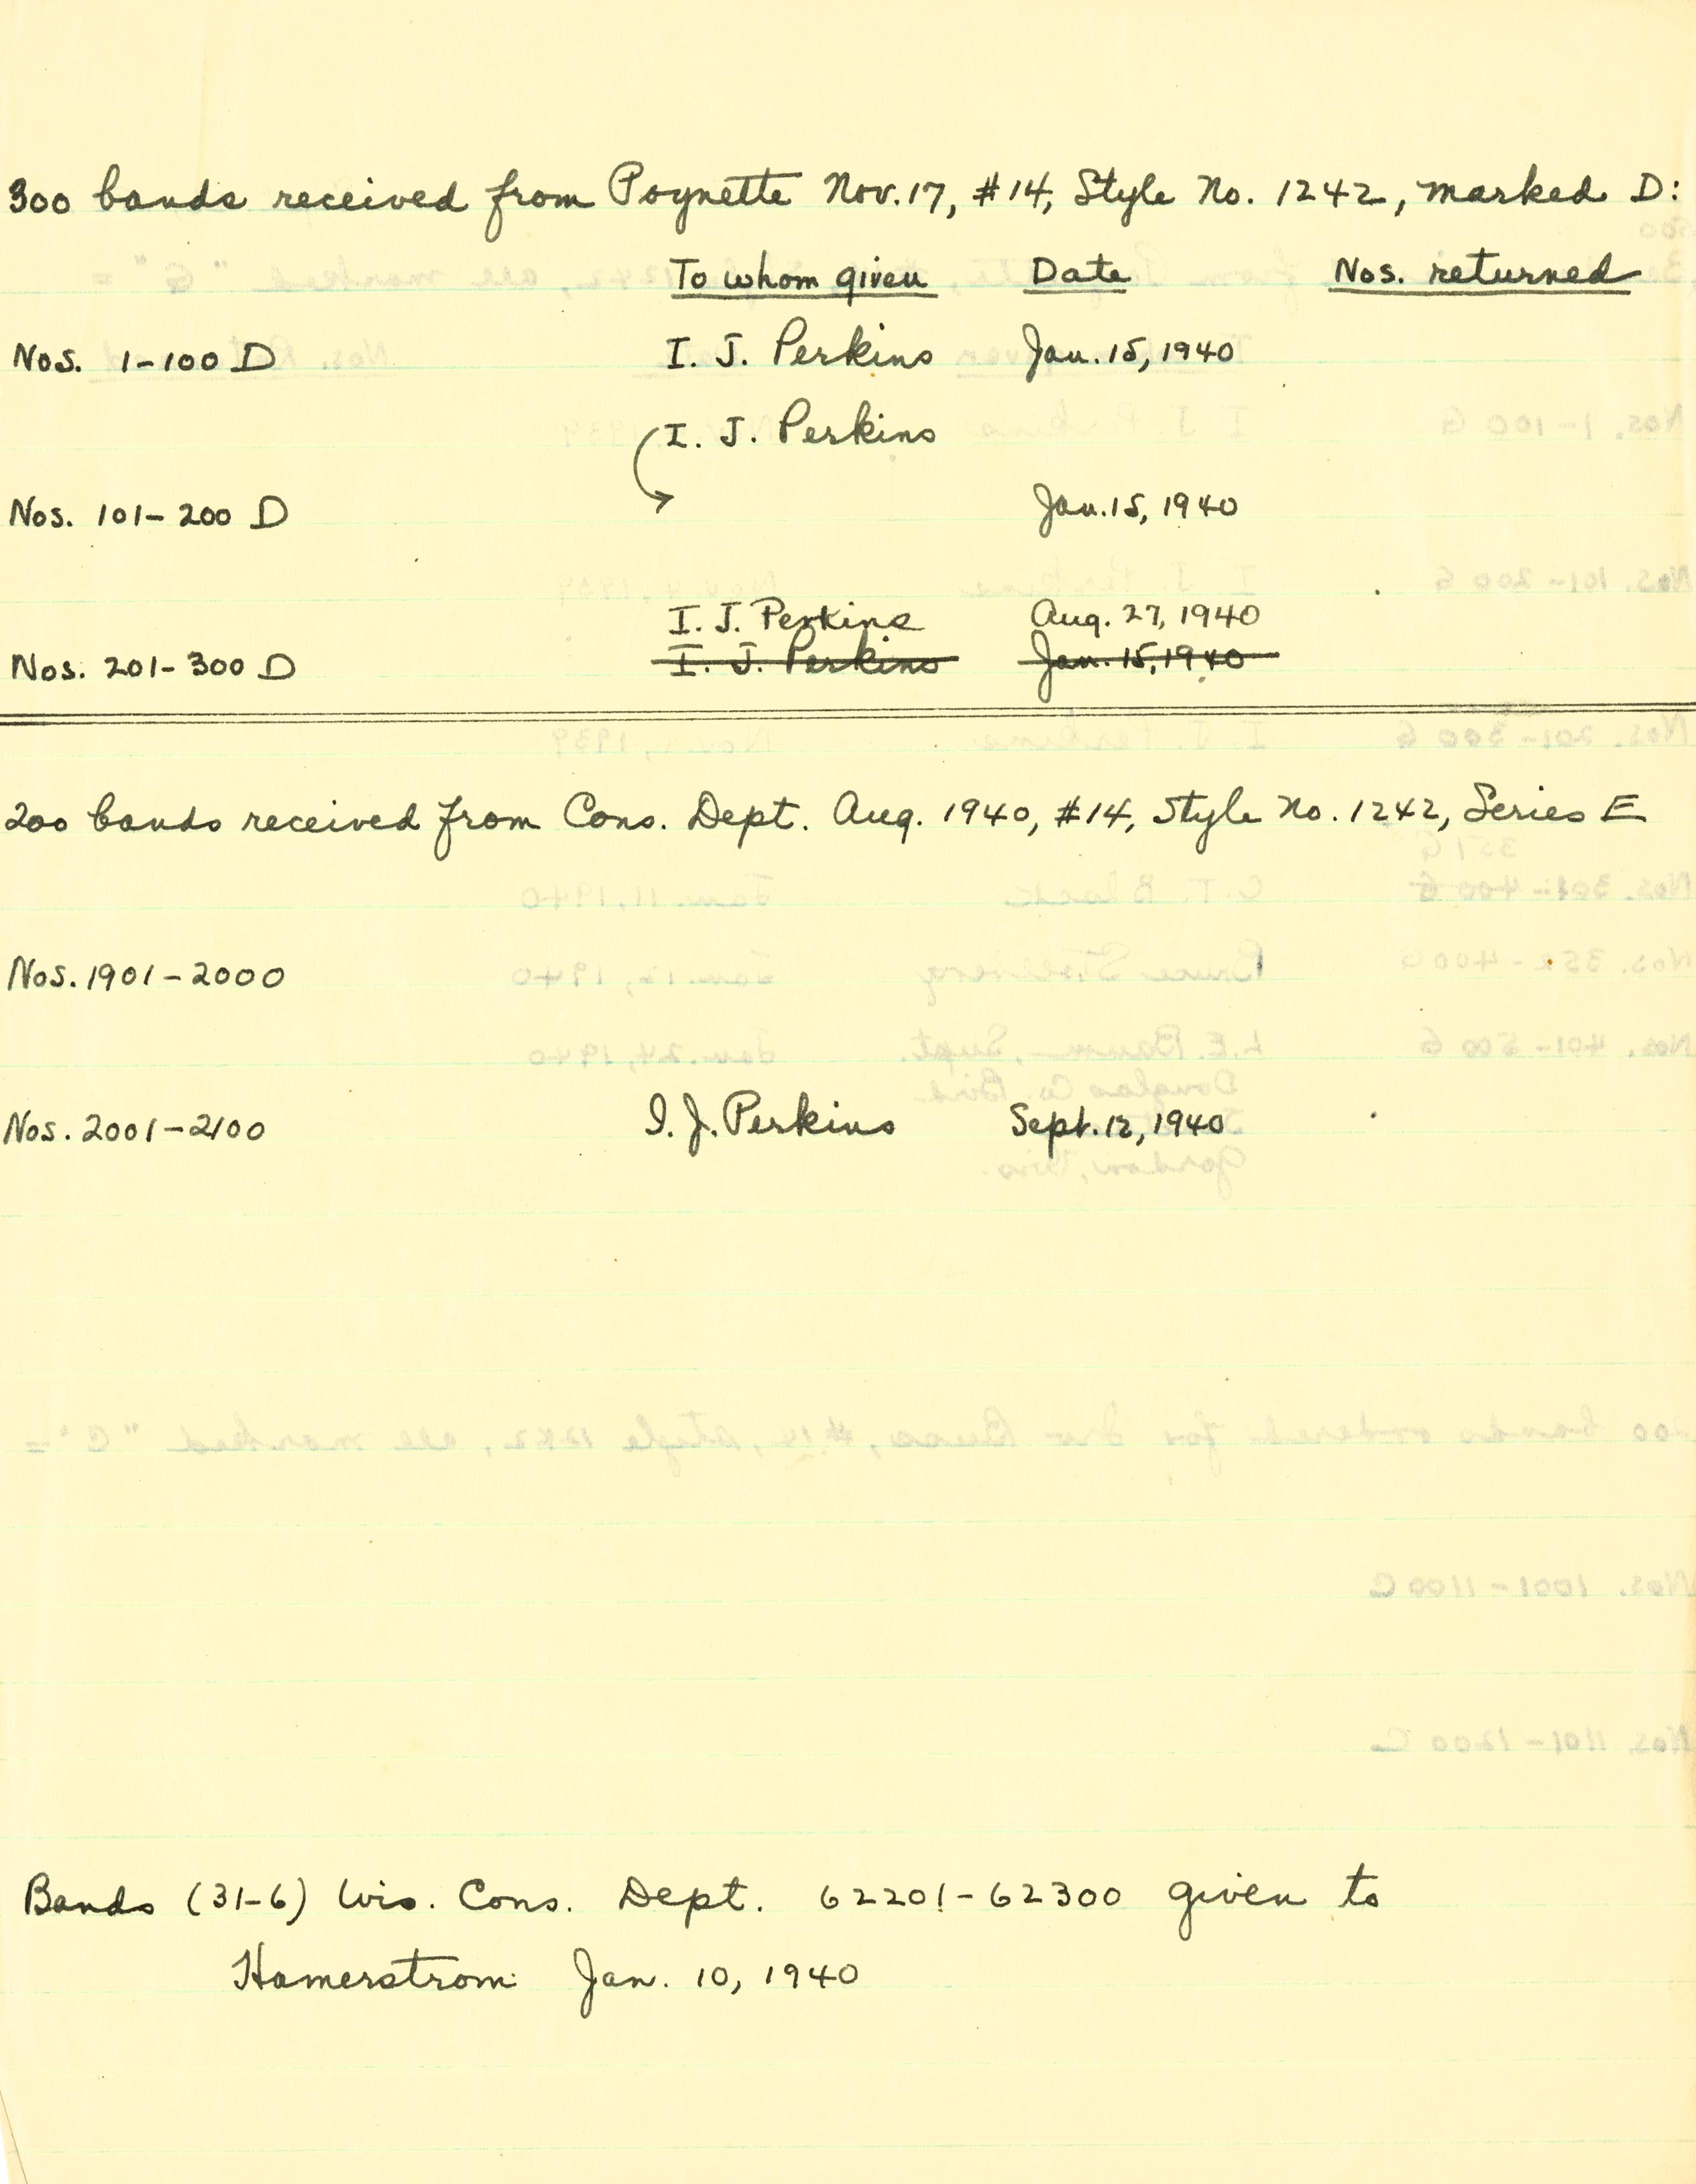 300 bands received from Poynette Nov. 17, #14, Style No. 1242, marked D:
To whom given Date Nos. returned
Nos. 1-100 D I. J. Perkins Jan. 15, 1940
I. J. Perkins
Nos. 101-200 D Jan. 15, 1940
I. J. Perkins Aug. 27, 1940
Nos. 201-300 D I. J. Perkins Jan. 15, 1940
200 bands received from Cons. Dept. Aug. 1940, #14, Style No. 1242, Series E
Nos. 1901-2000
Nos. 2001-2100 I. J. Perkins Sept. 12, 1940
Bands (31-6) Wis. Cons. Dept. 62201-62300 given to
Hamerstrom Jan. 10, 1940